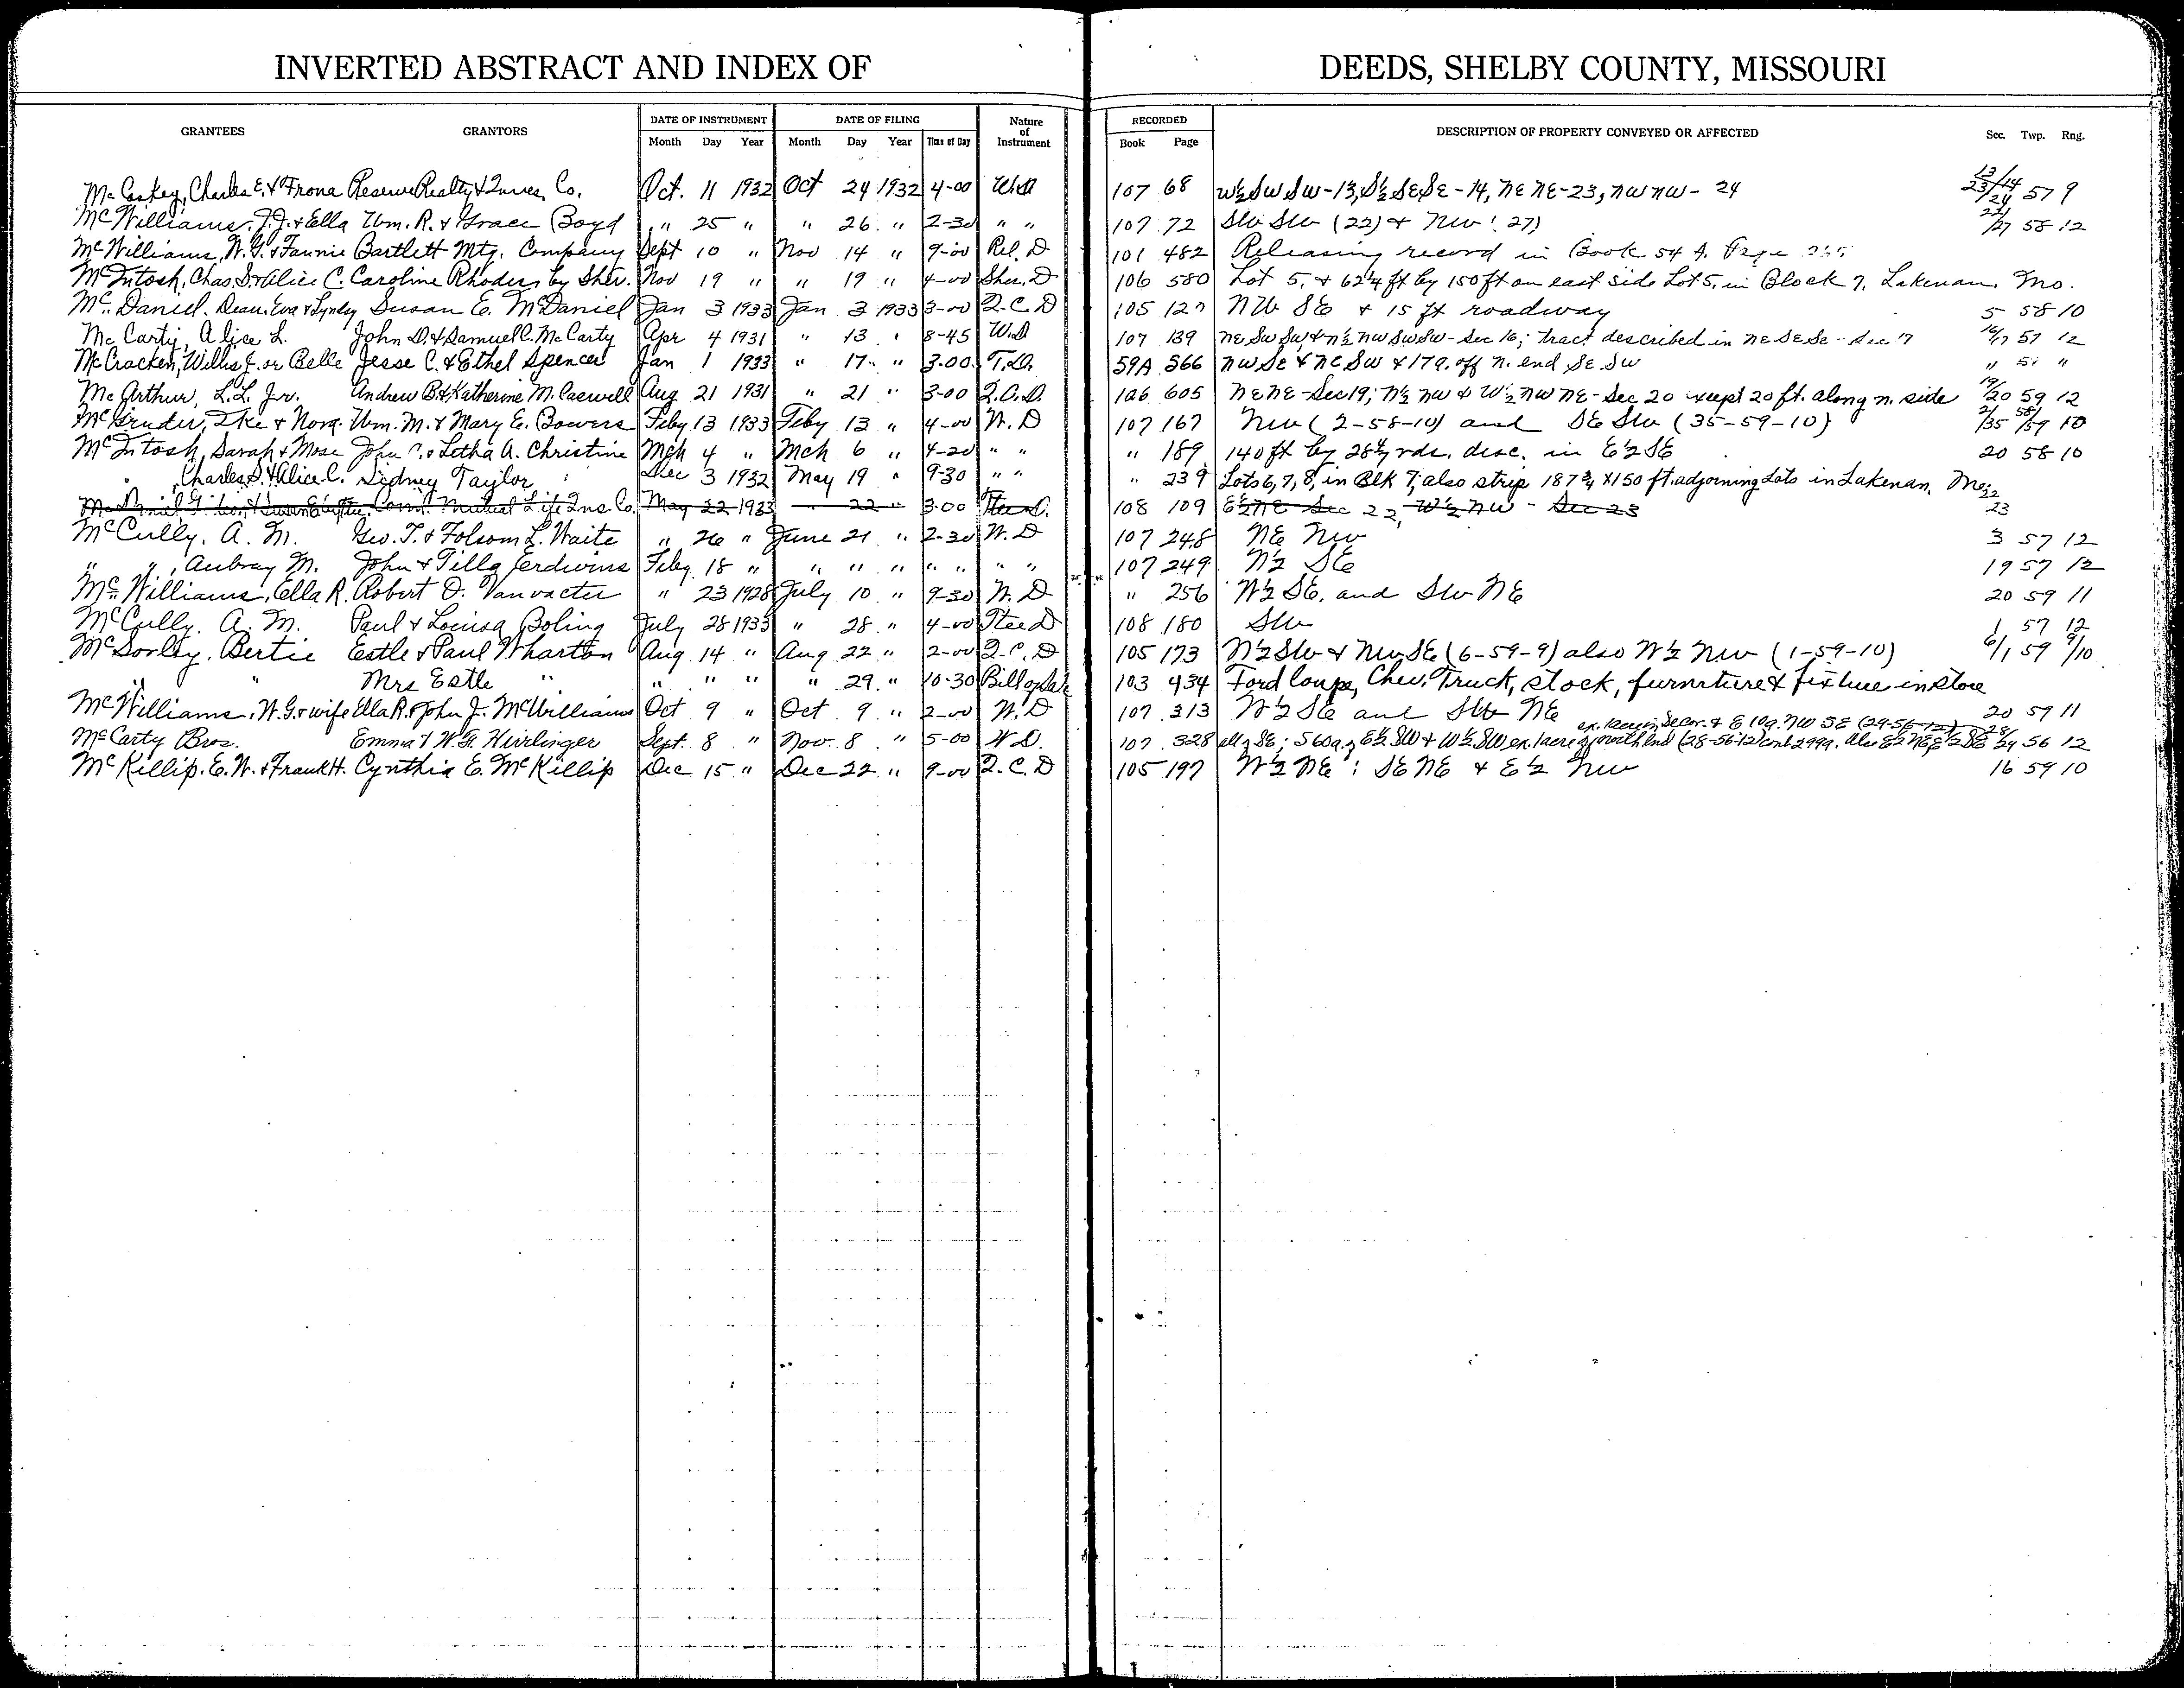 INVERTED ABSTRACT AND INDEX OF DEEDS, SHELBY COUNTY, MISSOURI
GRANTEES GRANTORS DATE OF INSTRUMENT DATE OF FILING Nature of Instrument RECORDED DESCRIPTION OF PROPERTY CONVEYED OR AFFECTED Sec. Twp. Rng.
Month Day Year Month Day Year Time of Day Book Page
McCaskey, Charles E. & Frona Reserve Realty & Inves. Co. Oct. 11 1932 Oct 24 1932 4-00 W.D 107 68 W½ SW SW-13, S½ SE SE-14, NE NE-23, NW NW-24 13/14 23/24 57 9
McWilliams, J.J. & Ella Wm. R. & Grace Boyd " 25 " " 26 " 2-30 " " 107 72 SW SW (22) & NW (27) 22/27 58 12
McWilliams, W.G. & Fannie Bartlett Mtg. Company Sept 10 " Nov 14 " 9-00 Rel. D 101 482 Releasing record in Book 54 A. Page
McIntosh, Chas. S. & Alice C. Caroline Rhodes, by Sher. Nov 19 " " 19 " 4-00 Sher. D 106 580 Lot 5, & 62¼ ft by 150 ft on east side Lot 5, in Block 7, Lakenan, Mo.
McDaniel, Dean, Eva & Lyndy Susan E. McDaniel Jan 3 1933 Jan 3 1933 3-00 Q.C.D 105 127 NW SE & 15 ft roadway 5 58 10
McCarty, Alice L. John D. & Samuel C. McCarty Apr 4 1931 " 13 " 8-45 W.D 107 139 NE SW SW & N½ NW SW SW-Sec 16; Tract described in NE SE SE-Sec 17 16/17 57 12
McCracken, Willis J. or Belle Jesse C. & Ethel Spencer Jan 1 1933 " 17 " 3.00 T.D. 59A 366 NW SE & NE SW & 17a. off N. end SE SW " 57 "
McArthur, L.L. Jr. Andrew B. & Katherine M. Caswell Aug 21 1931 " 21 " 3-00 Q.C.D. 106 605 NE NE-Sec 19; N½ NW & W½ NW NE-Sec 20 except 20 ft. along n. side 19/20 59 12
McGruder, Ike & Nora Wm. M. & Mary E. Bowers Feby 13 1933 Feby 13 " 4-00 W.D 107 167 NW (2-58-10) and SE SW (35-59-10) 2/35 58/59 10
McIntosh, Sarah & Mose John C. & Letha A. Christine Mch 4 " Mch 6 " 4-20 " " " 189 140 ft by 28½ rds. desc. in E½ SE 20 58 10
" Charles S. & Alice C. Sidney Taylor Dec 3 1932 May 19 " 9-30 " " " 239 Lots 6, 7, 8, in Blk 7; also strip 187¾ x 150 ft. adjoining Lots in Lakenan, Mo.
Conn. Mutual Life Ins. Co. May 22 1933 " 22 " 3.00 108 109 E½ NE Sec 22, W½ NW - Sec 23 22/23
McCully, A. M. Geo. T. & Folsom L. Waite " 26 " June 21 " 2-30 W.D 107 248 NE NW 3 57 12
" ", Aubray M. John & Tilla Jerdwins Feby 18 " " " " " " " " 107 249 N½ SE 19 57 12
McWilliams, Ella R. Robert D. Vanvacter " 23 1928 July 10 " 9-30 W.D " 256 W½ SE, and SW NE 20 59 11
McCully, A. M. Paul & Louisa Boling July 28 1933 " 28 " 4-00 Stee D 108 180 SW 1 57 12
McSorley, Bertie Estle & Paul Wharton Aug 14 " Aug 22 " 2-00 Q.C.D 105 173 N½ SW & NW SE (6-59-9) also W½ NW (1-59-10) 6/1 59 9/10
" " Mrs Estle " " " " " 29 " 10-30 Bill of Sale 103 434 Ford Coupe, Chev. Truck, stock, furniture & fixture in store
McWilliams, W.G. & wife Ella R. & John J. McWilliams Oct 9 " Oct 9 " 2-00 W.D 107 313 W½ SE and SW NE 20 59 11
McCarty Bros. Emma & W.F. Hirrlinger Sept. 8 " Nov. 8 " 5-00 W.D. 107 328 all of SE; 560a. of E½ SW & W½ SW ex. 1 acre of north end (28-56-12) cont 299a. Also E½ NE, E½ SE ex. 1 acre in Se cor. & E 10a. NW SE (29-56-12) 28/29 56 12
McKillip, E.W. & Frank H. Cynthia E. McKillip Dec 15 " Dec 22 " 9-00 Q.C.D 105 197 W½ NE; SE NE & E½ NW 16 59 10